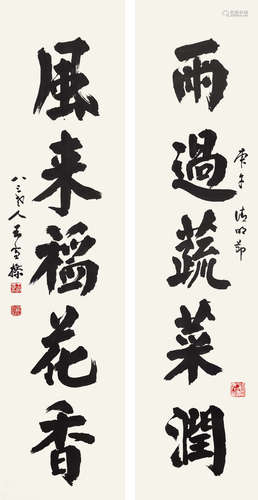 雨過蔬菜潤
庚午清明節
風来稻花香
八三叟人王雪樵